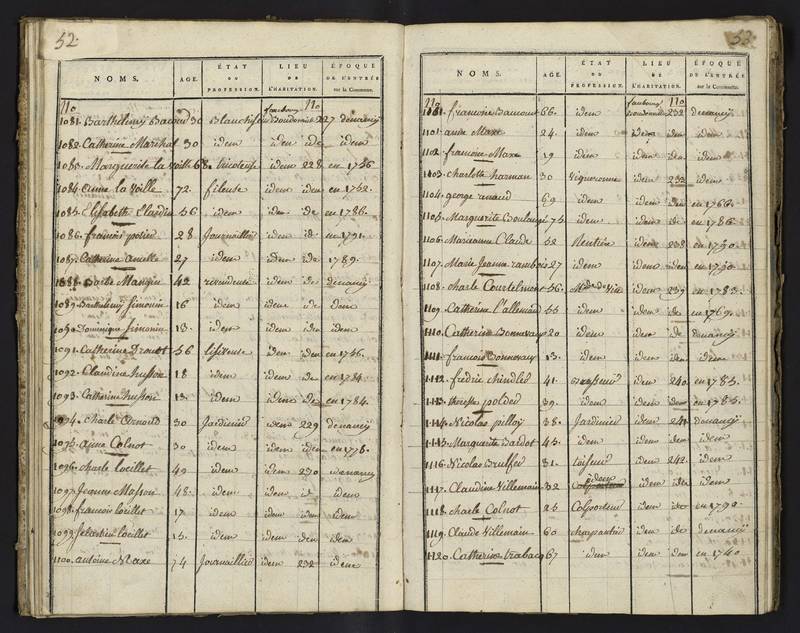 52.
NOMS. AGE. ÉTAT OU PROFESSION. LIEU DE L'HABITATION. ÉPOQUE DE L'ENTRÉE sur la Commune.
No faubourg No
1081. Barthelemy 30 Blanchisseur Boudonville 227 denancy
1082. Catherine Marchal 30 idem idem ide idem
1083. Marguerite la voille 68. tricoteuse idem 228 en 1756
1084. anne la voille 72. fileuse idem idem en 1752.
1085. Elisabeth Claudin 56 idem idem de en 1786.
1086. francois posier 28 Journaillier idem id. en 1791.
1087. Catherine 27 idem idem ide 1789.
1088. Barbe Mangin 42 revendeuse idem de denancy
1089. Barthelemy Simonin 16 idem idem de idem
1090. Dominique Simonin 13. idem idem de idem
1091. Catherine Drouot 56 idem idem en 1756.
1092. Claudine husson 18 idem idem de en 1784.
1093. Catherine husson 13. idem idem de en 1784.
1094. charle 30 Jardinier idem 229 denancy
1095. anne Colnot 30 idem idem idem en 1778.
1096. charle loeillet 49 idem idem 230 denancy
1097. Jeanne Masson 48. idem idem id idem
1098. francois loeillet 17 idem idem idem idem
1099. Sebastien loeillet 15. idem idem idem idem
1100. antoine Maxe 74 Journaillier idem 232 idem
53.
NOMS. AGE. ÉTAT OU PROFESSION. LIEU DE L'HABITATION. ÉPOQUE DE L'ENTRÉE sur la Commune.
No faubourg No
francoise 66. idem Boudonville 232 denancy
1101. anne Maxe 24. idem idem idem idem
1102. francoise Maxe 19 idem idem idem idem
1103. charlotte harman 30 Vigneronne idem 232 idem
1104. george renaud 69 idem idem idem en 1766.
1105. Marguerite Boulanger 75 idem idem id en 1786
1106. Marianne Claude 52 Rentiere idem 238 en 1750
1107. Marie Jeanne rambois 27 idem idem idem en 1790.
1108. charle Courtelmont 56. idem 239 en 1783.
1109. Catherine l'allemand 55 idem idem de en 1769.
1110. Catherine Bonnevaux 20 idem idem de denancy
1111. francois Bonnevaux 13. idem idem idem idem
1112. fredric chindler 41. idem 240 en 1785.
1113. therese polder 39. idem idem idem en 1785.
1114. Nicolas pilloy 38. Jardinier idem 241 denancy
1115. Marguerite Bardot 43. idem idem idem idem
1116. Nicolas 31. idem 242. idem
idem
1117. Claudine Villemain 32 Colporteur idem ide idem
1118. charle Colnot 25 Colporteur idem ido en 1792
1119. Claude Villemain 60 charpentier idem ido denancy
1120. Catherine trabacq 67 idem idem idem en 1740